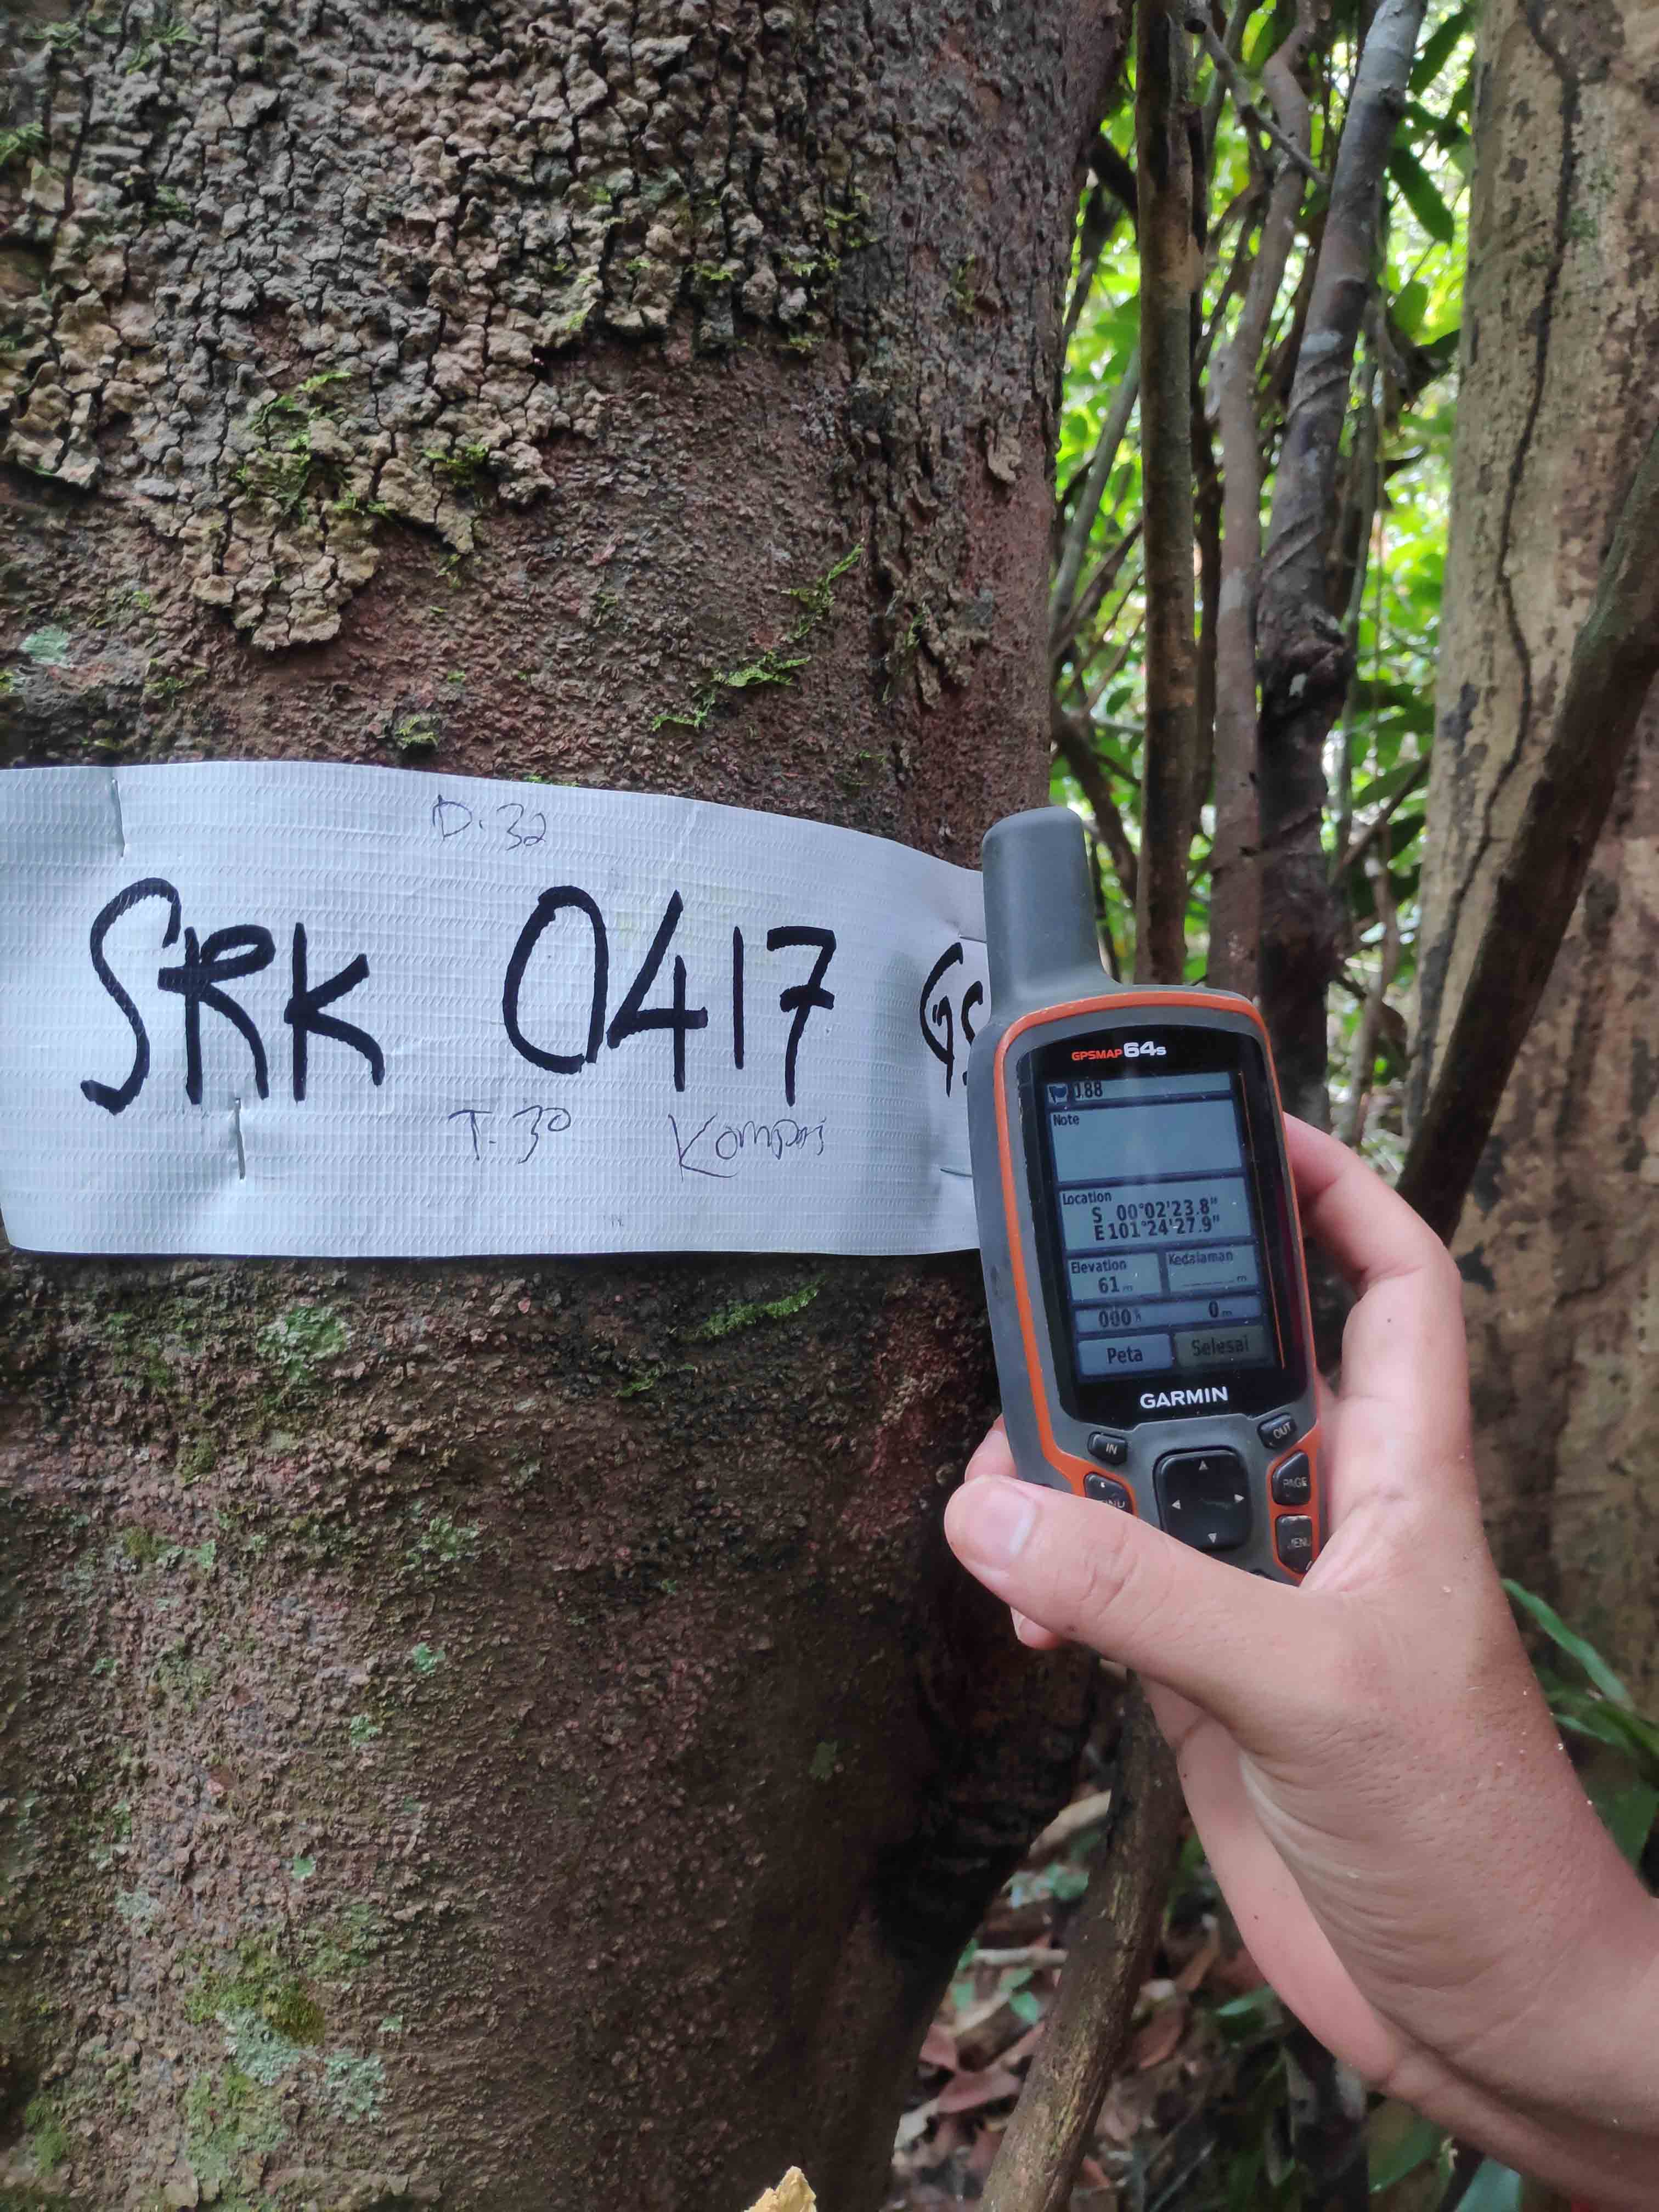 D. 32
SRK 0417 GS
T. 30 Kompas
GPSMAP 64s
088
Note
Location
S 00°02'23.8"
E101°24'27.9"
Elevation
Kedalaman
61 m
m
0 m
Peta
Selesai
GARMIN
IN
OUT
PAGE
MENU